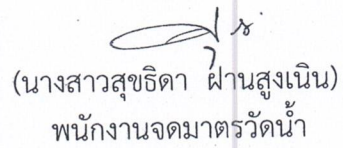 (นางสาวสุขธิดา ฝ่านสูงเนิน)
พนักงานจดมาตรวัดน้ำ